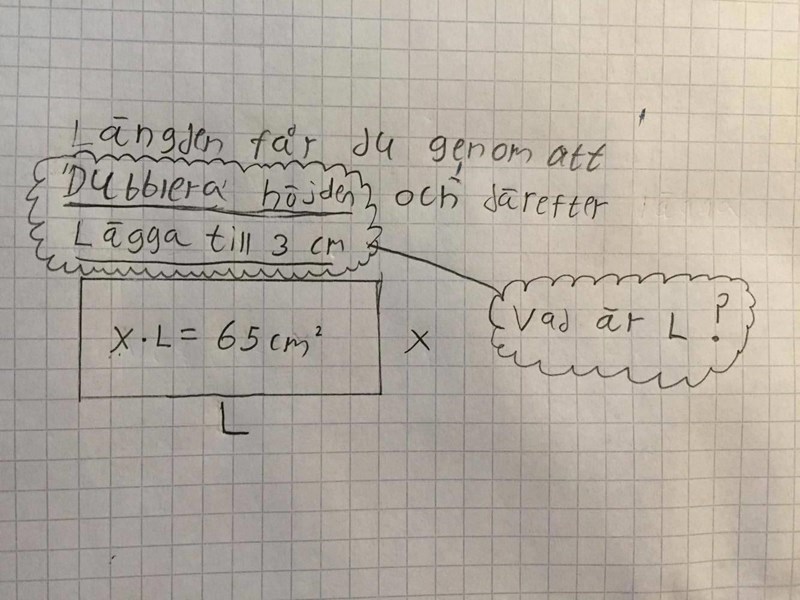 Längden får du genom att
Dubblera höjden och därefter
Lägga till 3 cm
X · L = 65 cm²
X
Vad är L?
L